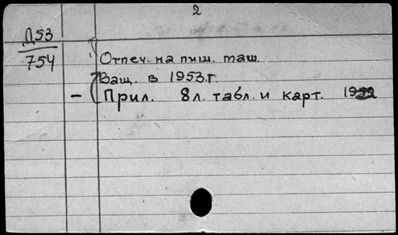 2
Д53
754
Отпеч. на пиш. маш.
Защ. в 1953 г.
– Прил. 8 л. табл. и карт.